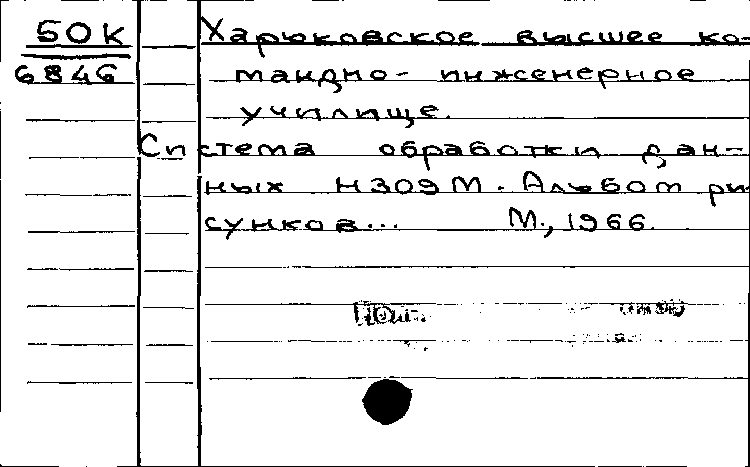 50К
6846
Харьковское высшее ко-
мандно-инженерное
училище.
Система обработки дан-
ных Н309М. Альбом ри
сунков... М., 1966.